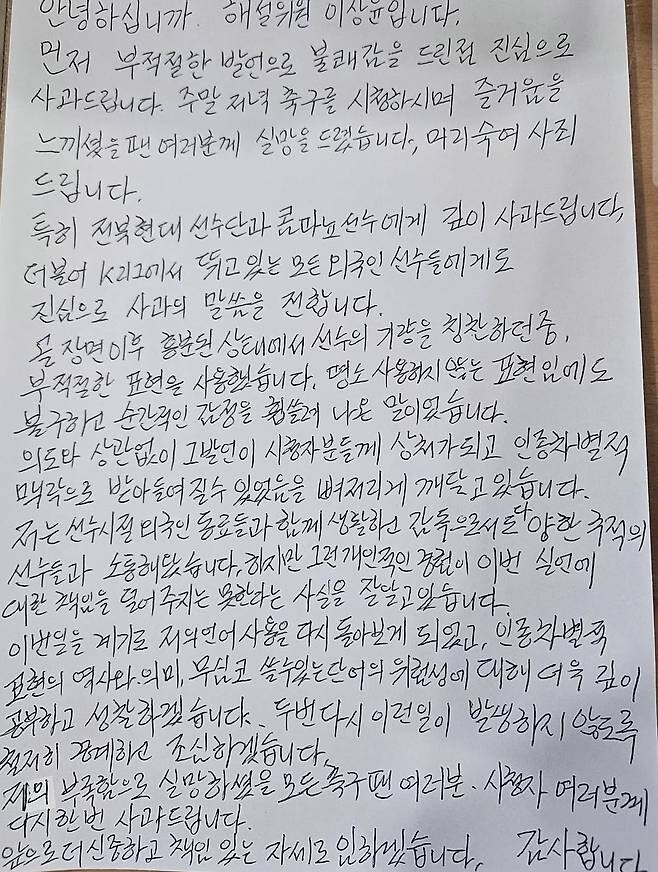 안녕하십니까. 해설위원 이상윤입니다.
먼저 부적절한 발언으로 불쾌감을 드린점 진심으로
사과드립니다. 주말 저녁 축구를 시청하시며 즐거움을
느끼셨을 팬 여러분께 실망을 드렸습니다. 머리숙여 사죄
드립니다.
특히 전북현대 선수단과 콤파뇨선수에게 깊이 사과드립니다.
더불어 K리그에서 뛰고 있는 모든 외국인 선수들에게도
진심으로 사과의 말씀을 전합니다.
골 장면이후 흥분된 상태에서 선수의 기량을 칭찬하던중,
부적절한 표현을 사용했습니다. 평소 사용하지 않는 표현임에도
불구하고 순간적인 감정을 휩쓸려 나온 말이었습니다.
의도와 상관없이 그발언이 시청자분들께 상처가되고 인종차별적
맥락으로 받아들여질수 있었음을 뼈저리게 깨닫고 있습니다.
저는 선수시절 외국인 동료들과 함께 생활하고 감독으로서도 다양한 국적의
선수들과 소통해왔습니다. 하지만 그런 개인적인 경험이 이번 실언에
대한 책임을 덜어 주지는 못한다는 사실을 잘알고있습니다.
이번일을 계기로 저의언어 사용을 다시 돌아보게 되었고, 인종차별적
표현의 역사와 의미, 무심코 쓸수있는 단어의 위험성에 대해 더욱 깊이
공부하고 성찰하겠습니다. 두번 다시 이런일이 발생하지 않도록
철저히 경계하고 조심하겠습니다.
저의 부족함으로 실망하셨을 모든축구팬 여러분·시청자 여러분께
다시한번 사과드립니다.
앞으로더 신중하고 책임 있는 자세로 임하겠습니다. 감사합니다